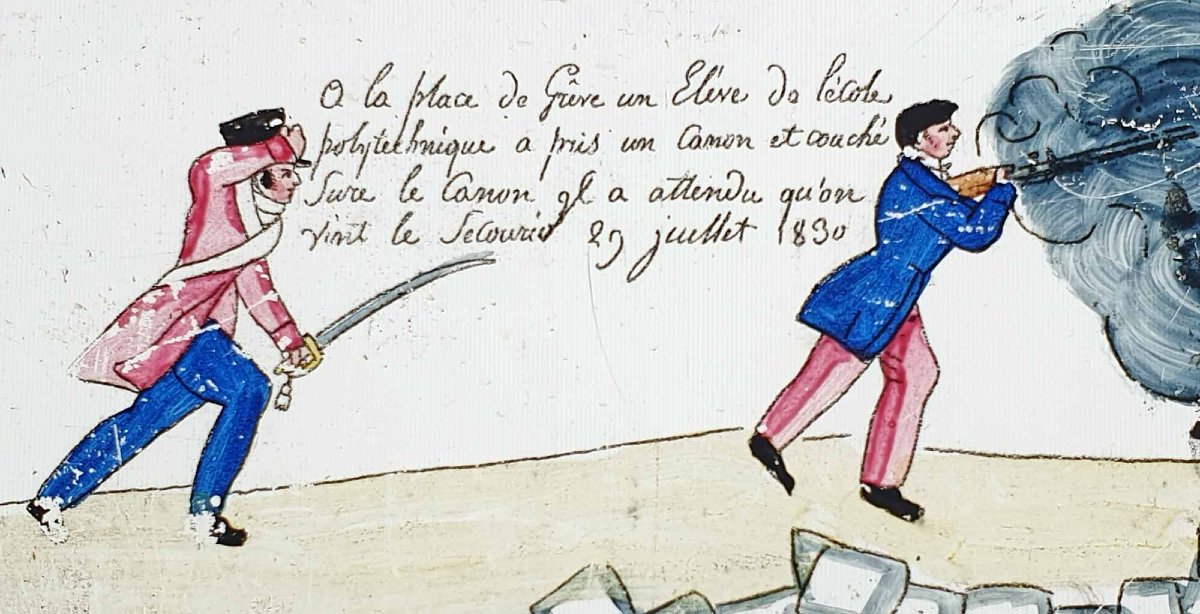 A la place de Grêve un Elève de l'école
polytechnique a pris un Canon et couché
Sure le Canon il a attendu qu'on
vint le Secourir 29 juillet 1830